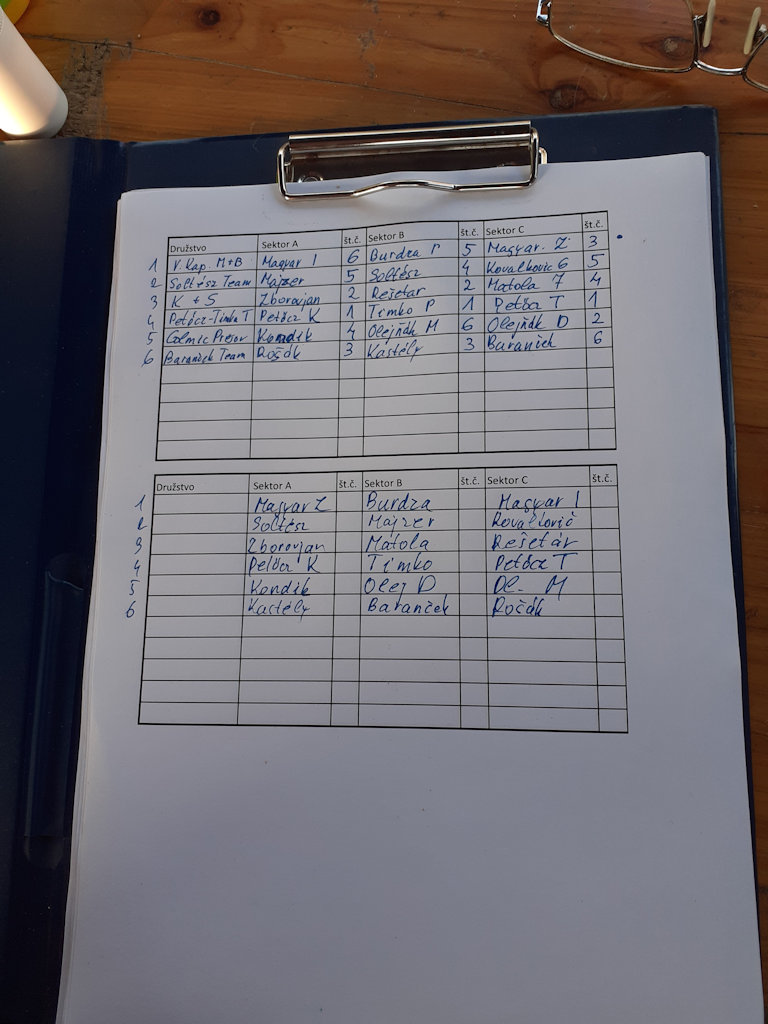 Družstvo Sektor A št.č. Sektor B št.č. Sektor C št.č.
1 V. Kap. M+B Magyar I 6 Burdza P 5 Magyar. Z 3
2 Soltész Team Májzer 5 Soltész 4 Kovalkovic 6 5
3 K + S Zborovjan 2 Rešetar 2 Matola 7 4
4 Petőcz-Timko T Petőcz K 1 Timko P 1 Petőcz T 1
5 Colmic Prešov Kondik 4 Olejňák M 6 Olejňák D 2
6 Baraniček Team Ročák 3 Kastély 3 Baraniček 6
Družstvo Sektor A št.č. Sektor B št.č. Sektor C št.č.
1 Magyar Z Burdza Magyar I
2 Soltész Májzer Kovalkovič
3 Zborovjan Matola Rešetár
4 Petőcz K Timko Petőcz T
5 Kondik Olej D Ol. M
6 Kastély Baraniček Ročák